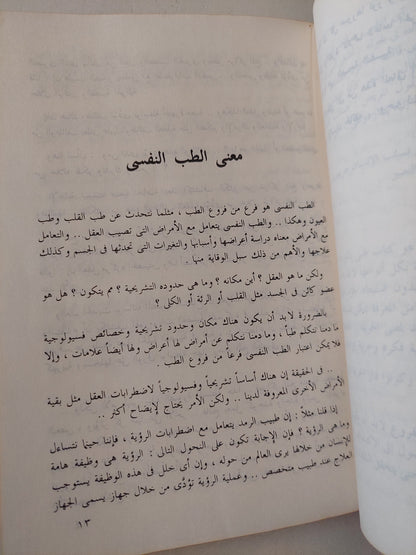 معنى الطب النفسى
الطب النفسى هو فرع من فروع الطب ، مثلما نتحدث عن طب القلب وطب
العيون وهكذا .. والطب النفسى يتعامل مع الأمراض التى تصيب العقل .. والتعامل
مع الأمراض معناه دراسة أعراضها وأسبابها والتغيرات التى تحدثها فى الجسم وكذلك
علاجها والأهم من ذلك سبل الوقاية منها .
ولكن ما هو العقل ؟ أين مكانه ؟ وما هى حدوده التشريحية ؟ مم يتكون ؟ هل هو
عضو كائن فى الجسد مثل القلب أو الرئة أو الكلى ؟
بالضرورة لابد أن يكون هناك مكان وحدود تشريحية وخصائص فسيولوجية
ما دمنا نتكلم طباً ، وما دمنا نتكلم عن أمراض لها أعراض ولها أيضاً علامات ، وإلا
فلا يمكن اعتبار الطب النفسى فرعاً من فروع الطب .
.. فى الحقيقة إن هناك أساساً تشريحياً وفسيولوجياً لاضطرابات العقل مثل بقية
الأمراض الأخرى المعروفة لدينا .. ولكن الأمر يحتاج لإيضاح أكثر ..
إذا قلنا مثلاً : إن طبيب الرمد يتعامل مع اضطرابات الرؤية ، فإننا حينما نتساءل
وما هى الرؤية ؟ فإن الإجابة تكون على النحول التالى : الرؤية هى وظيفة هامة
للإنسان من خلالها يرى العالم من حوله ، وإن أى خلل فى هذه الوظيفة يستوجب
العلاج عند طبيب متخصص .. وعملية الرؤية تؤدَّى من خلال جهاز يسمى الجهاز
١٣